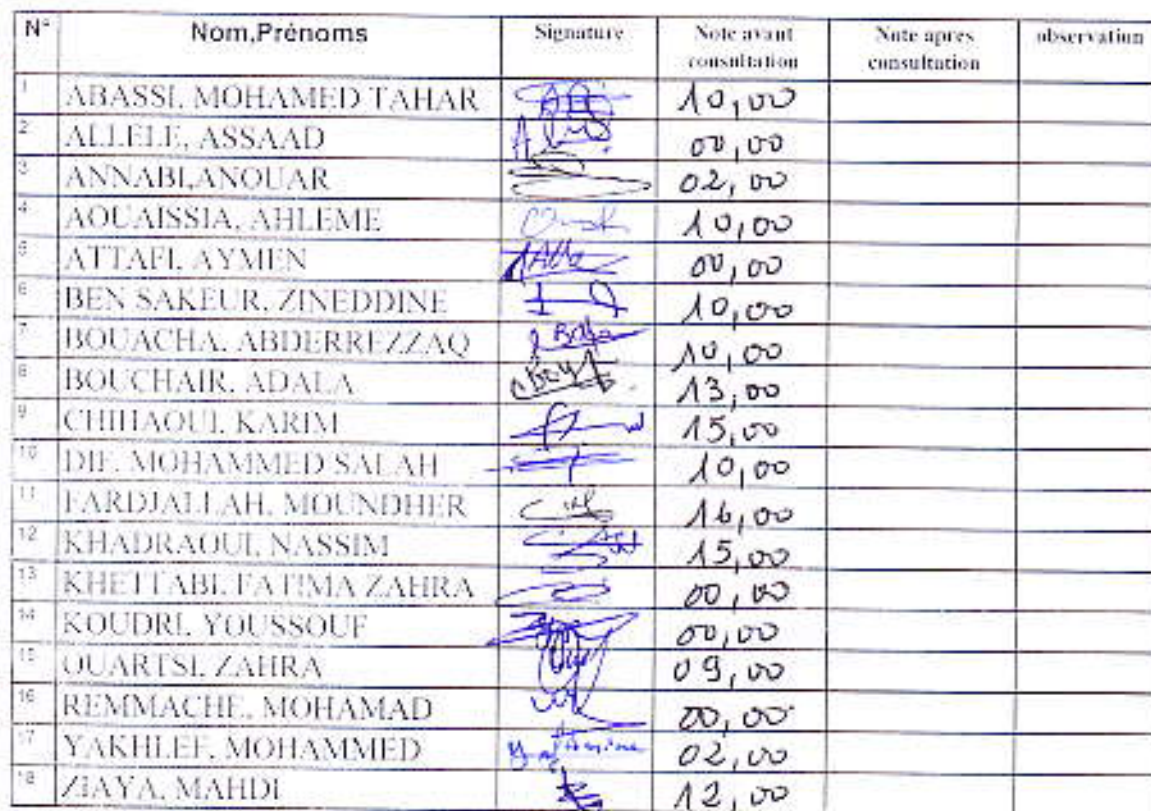 N° Nom,Prénoms Signature Note avant consultation Note apres consultation observation
1 ABASSI, MOHAMED TAHAR 10,00
2 ALLELE, ASSAAD 00,00
3 ANNABI,ANOUAR 02,00
4 AOUAISSIA, AHLEME 10,00
5 ATTAFI, AYMEN 00,00
6 BEN SAKEUR, ZINEDDINE 10,00
7 BOUACHA, ABDERREZZAQ 10,00
8 BOUCHAIR, ADALA 13,00
9 CHIHAOUI, KARIM 15,00
10 DIF, MOHAMMED SALAH 10,00
11 FARDJALLAH, MOUNDHER 16,00
12 KHADRAOUI, NASSIM 15,00
13 KHETTABI, FATIMA ZAHRA 00,00
14 KOUDRI, YOUSSOUF 00,00
15 OUARTSI, ZAHRA 09,00
16 REMMACHE, MOHAMAD 00,00
17 YAKHLEF, MOHAMMED 02,00
18 ZIAYA, MAHDI 12,00